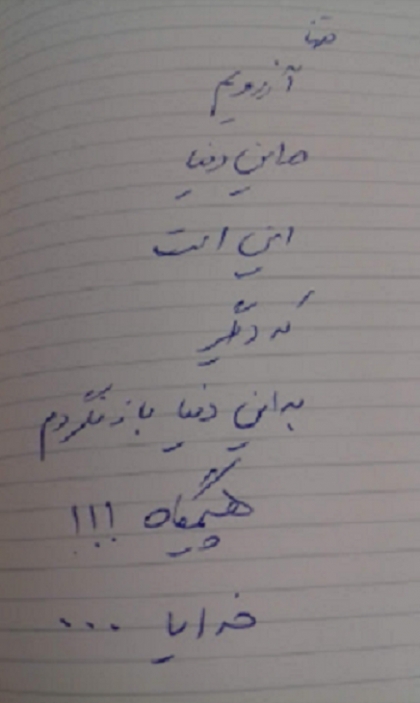 تنها
آرزویم
در این دنیا
این است
که دیگر
به این دنیا بازنگردم
هیچگاه !!!
خدایا ...